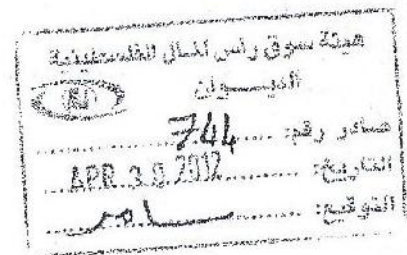 هيئة سوق رأس المال الفلسطينية
الديوان
صادر رقم: 744
التاريخ: APR 30 2012
التوقيع: سامر